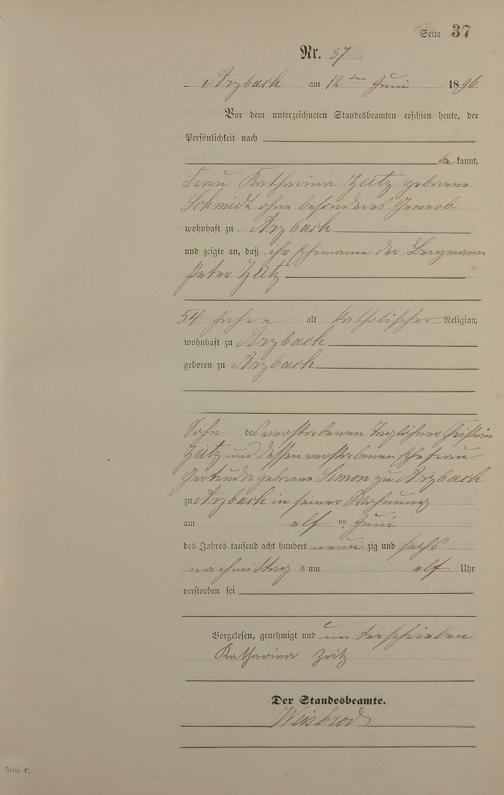 Seite 37
Nr. 37
Arzbach am 12 ten Juni 1896
Vor dem unterzeichneten Standesbeamten erschien heute, der
Persönlichkeit nach
be kannt,
Frau Katharina Zeitz geborene
Schmidt ohne besonderes Gewerb
wohnhaft zu Arzbach
und zeigte an, daß ihr Ehemann der Bergmann
Peter Zeitz
54 Jahre alt katholischer Religion,
wohnhaft zu Arzbach
geboren zu Arzbach
Sohn des verstorbenen Taglöhner Christian
Zeitz und dessen verstorbenen Ehefrau
Gertruda geborene Simon zu Arzbach
zu Arzbach in seiner Wohnung
am elf ten Juni
des Jahres tausend acht hundert neun zig und sechs
nachmittag s um elf Uhr
verstorben sei
Vorgelesen, genehmigt und unterschrieben
Katharina Zeitz
Der Standesbeamte.
Weisbrod
Form. C.